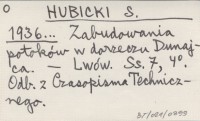 HUBICKI S.
1936... Zabudowania
potoków w dorzeczu Dunaj-
ca. — Lwów. Ss. 7, 4°.
Odb. z Czasopisma Technicz-
nego.